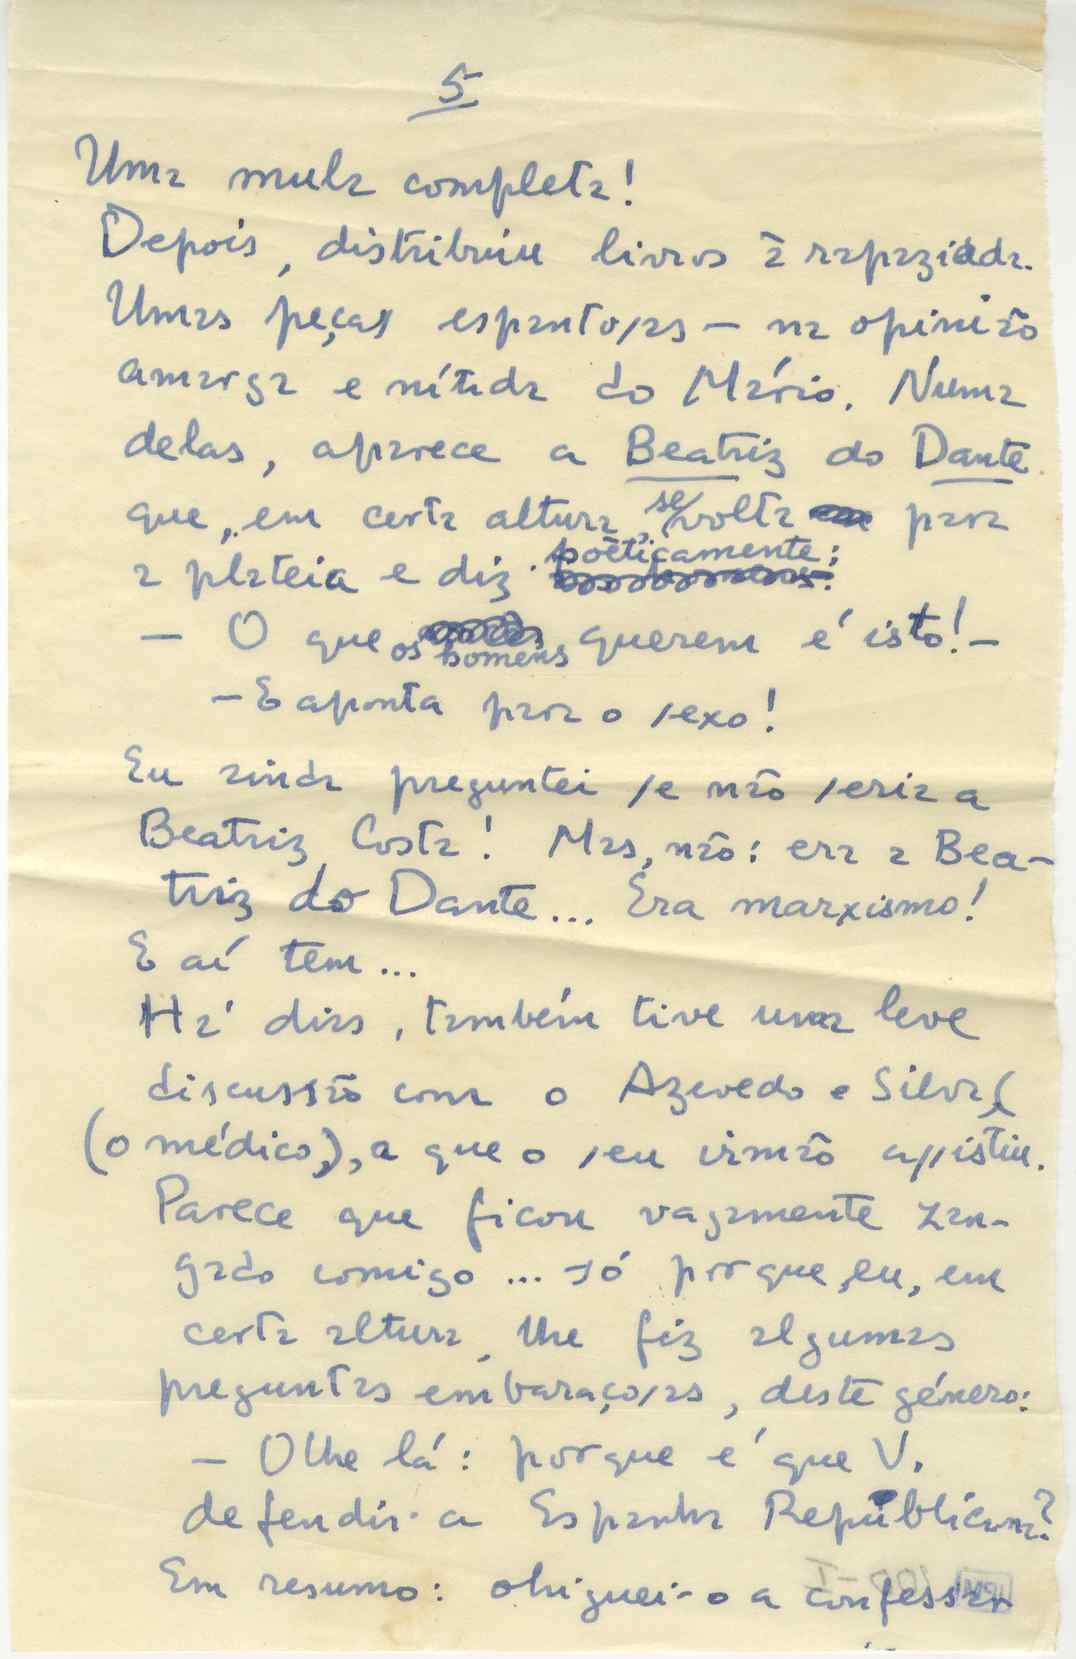 5
Uma mula completa!
Depois, distribuiu livros à rapaziada.
Umas peças espantosas — na opinião
amarga e nítida do Mário. Numa
delas, aparece a Beatriz do Dante
que, em certa altura, se volta para
a plateia e diz poèticamente:
— O que os homens querem é isto! —
— E aponta para o sexo!
Eu ainda preguntei se não seria a
Beatriz Costa! Mas, não: era a Bea-
triz do Dante... Era marxismo!
E aí tem...
Há dias, também tive uma leve
discussão com o Azevedo e Silva
(o médico), a que o seu irmão assistiu.
Parece que ficou vagamente zan-
gado comigo... só porque, eu, em
certa altura, lhe fiz algumas
preguntas embaraçosas, deste género:
— Olhe lá: porque é que V.
defendia a Espanha Republicana?
Em resumo: obriguei-o a confessar